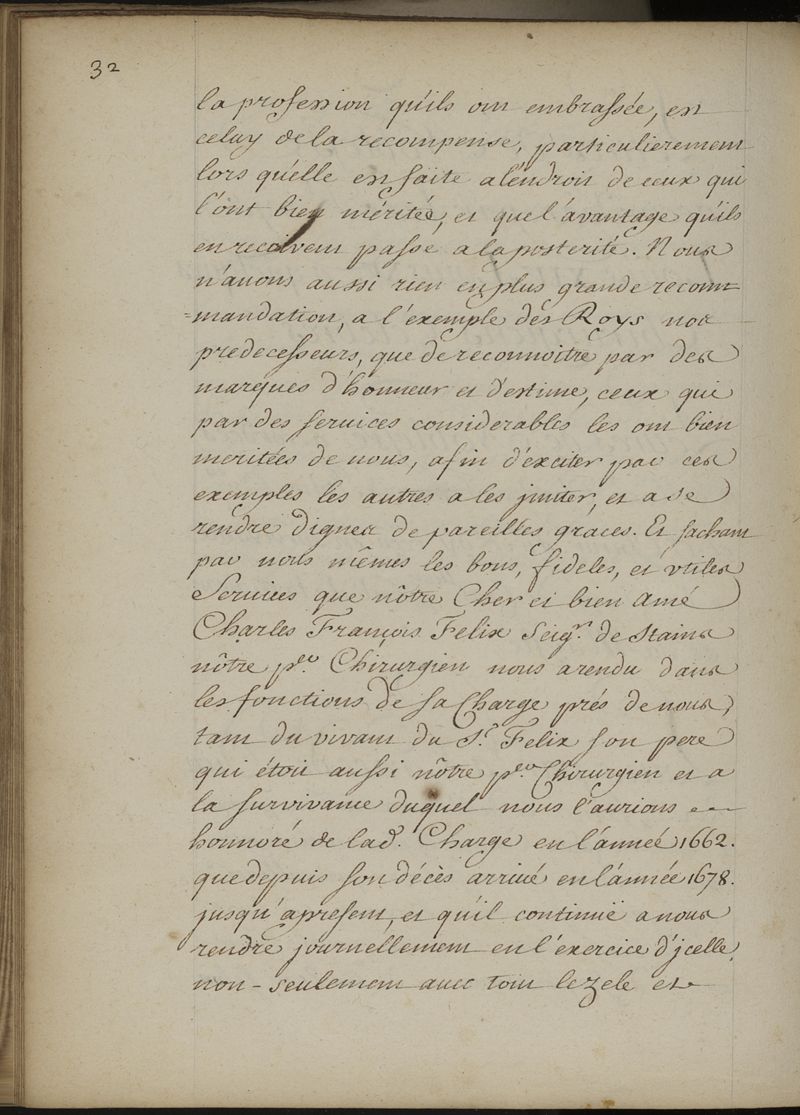 32
la profession qu'ils ont embrassée, est
celuy de la recompense, particulierement
lors qu'elle est faite a lendroit de ceux qui
l'ont bien méritée, et que l'avantage qu'ils
en recoivent passe a la posterité. Nous
n'auons aussi rien en plus grande recom=
=mandation, a l'exemple des Roys nos
predecesseurs, que de reconnoitre par des
marques d'honneur et d'estime, ceux qui
par des seruices considerables les ont bien
meritées de nous, afin d'exciter par ces
exemples les autres a les jmiter, et a se
rendre dignes de pareilles graces. Et sachant
par nous mêmes les bons, fideles, et vtiles
Seruices que nôtre Cher et bien Amé
Charles François Felix Seigr. de Stains
nôtre p.er Chirurgien nous a rendu dans
les fonctions de sa Charge prés de nous,
tant du vivant du Sr. Felix son pere
qui étoit aussi nôtre p.er Chirurgien et a
la survivance duquel nous l'aurions
honnoré de lad. Charge en l'année 1662.
que depuis son décès arriué en l'année 1678.
jusqu'apresent, et qu'il continuë a nous
rendre journellement en l'exercice d'jcelle,
non-seulement auec tout le zele et